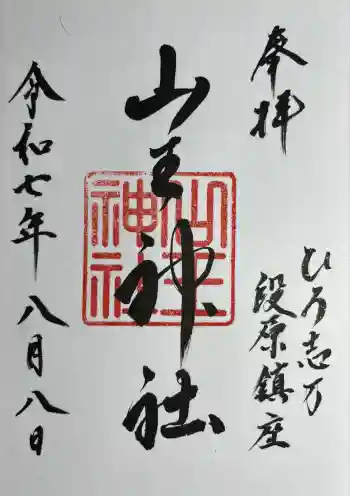 奉拝
ひろ志万
段原鎮座
山王神社
山王神社
令和七年八月八日